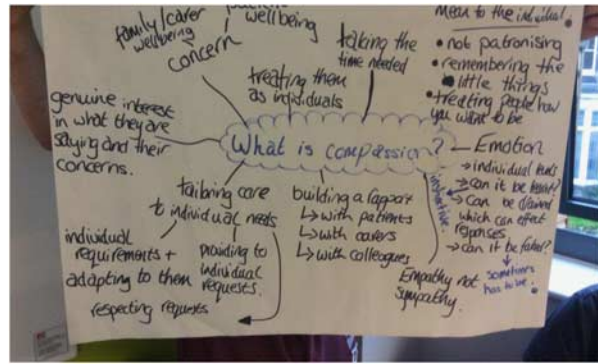 family/carer
wellbeing
wellbeing
concern
taking the
time needed
mean to the individual.
• not patronising
• remembering the
little things
• treating people how
you want to be
treating them
as individuals
genuine interest
in what they are
saying and their
concerns.
What is compassion?
Emotion
→ individual levels
→ can it be
→ can be drained
which can effect
responses
→ can it be false?
sometimes
has to be.
instinctive.
tailoring care
to individual needs
individual
requirements +
adapting to them
providing to
individual
requests.
respecting requests
building a rapport
↳ with patients
↳ with carers
↳ with colleagues
Empathy not
sympathy.